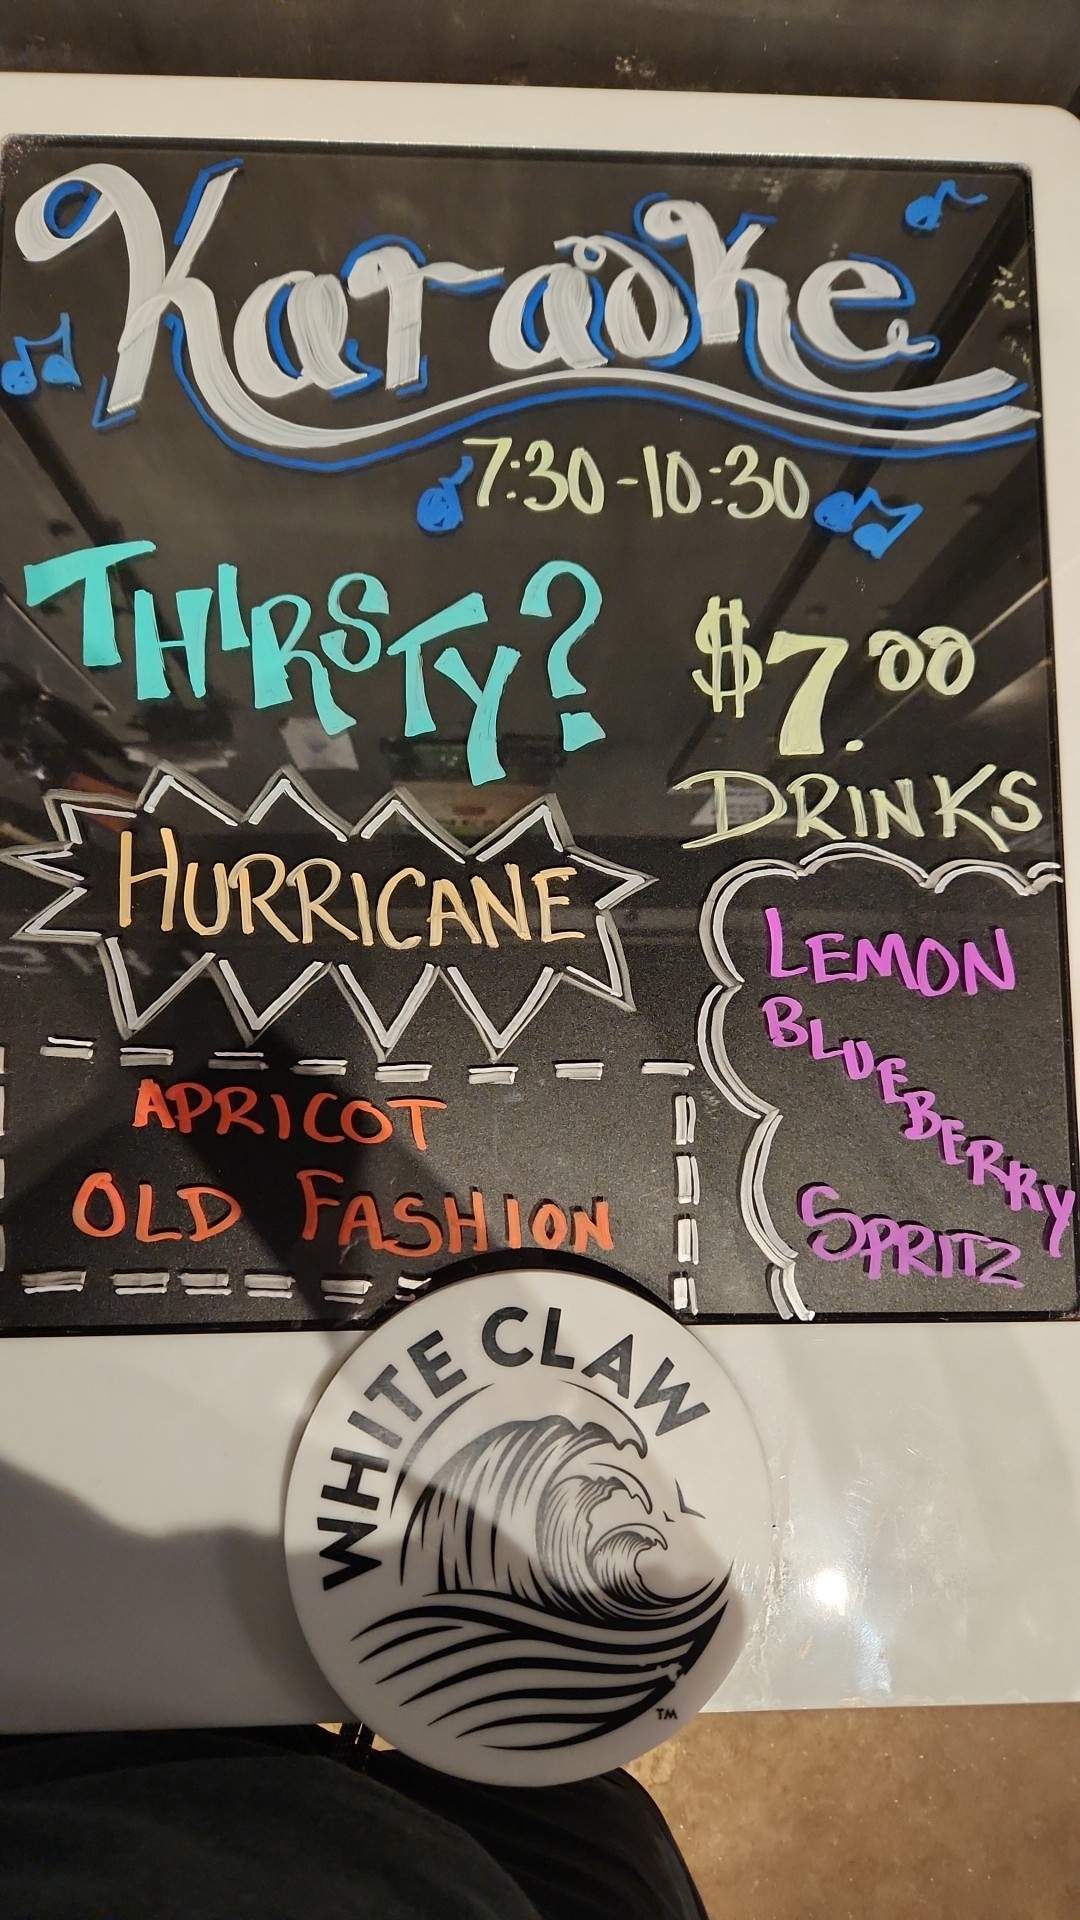 Karaoke
7:30-10:30
THIRSTY?
$7.00
DRINKS
HURRICANE
LEMON
BLUEBERRY
SPRITZ
APRICOT
OLD FASHION
WHITE CLAW
TM